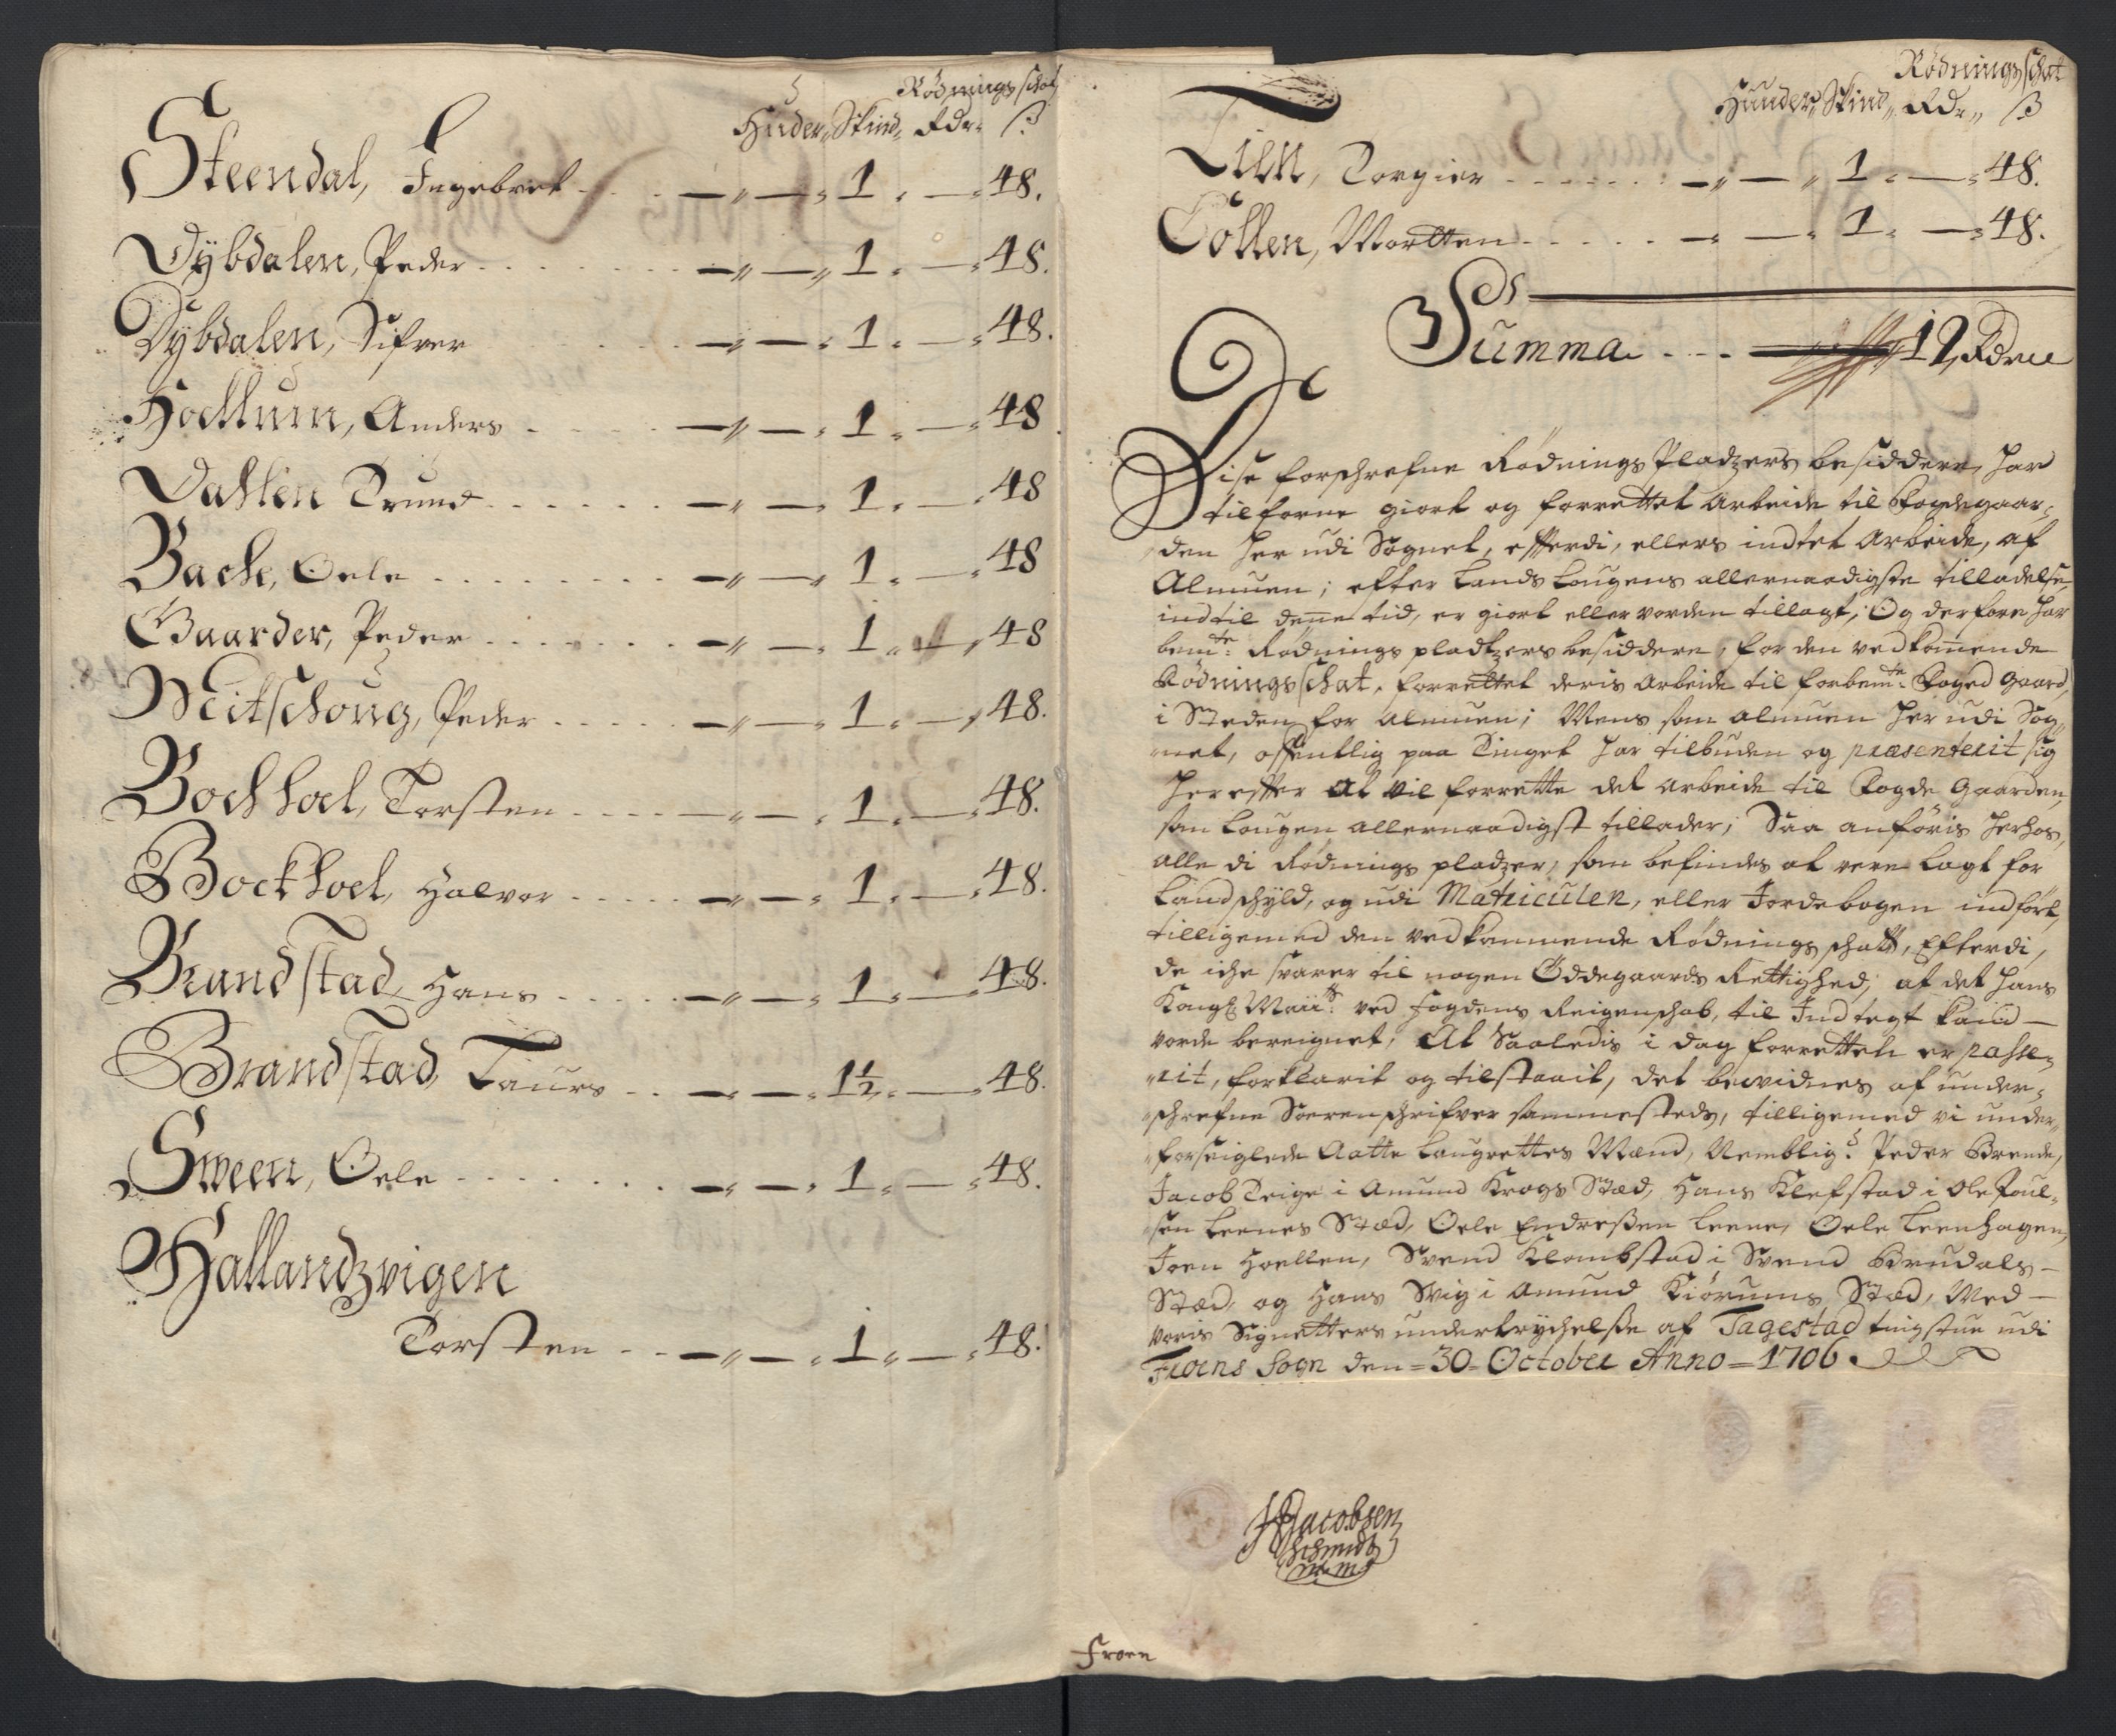 Rødnings schat
Huder, Skind, Rdr ß
Steendal, Ingebret 1 48.
Dybdalen, Peder 1 48.
Dybdalen, Sifver 1 48.
Hocklum, Anders 1 48
Dahlen Trund 1 48
Bache, Oele 1 48
Gaarder, Peder 1 48
Peder 1 48.
Bochhoel, Torsten 1 48.
Bockhoel, Halvor 1 48.
Brandstad, Hans 1 48.
Brandstad, Laurs 1½ 48.
Sween, Oele 1 48.
Hallandzvigen
Torsten 1 48.
Rødnings schat
Huder, Skind, Rdr ß
Lien, Torgier 1 48.
Collen, Mortten 1 48.
Summa 12 Rdr
Dise forschrefne Rødnings Pladzers besiddere, har
tilforne giort og forrettet arbeide til Fogdegaar-
den her udi Sognet, efferdi, ellers indtet Arbeide, af
Almuen; efter Lands Lougens allernaadigste tilladelse,
indtil denne tid, er giort eller vorden tillagt; Og derfore har
bemte: Rødnings pladtzers besiddere, for den vedkomende
Rødnings schat, forrettet deris arbeide til forbemte: Foged gaard,
i Steden for Almuen; Mens som almuen her udi Sog-
net, offentlig paa Tinget har tilbuden og præsenterit sig
herefter at vil forrette det arbeide til Fogde Gaarden,
som Lougen allernaadigst tillader; Saa anføris herhos,
alle di Rødnings pladzer, som befindes at vere lagt for
Landschyld, og udi Matriculen, eller Jordebogen indført,
tilligemed den vedkommende Rødnings schatt, Efterdi,
de iche svarer til nogen Øddegaards Rettighed, at det Hans
Kongl Maiits: ved Fogdens Reigenschab, til Indtegt kand
vorde bereignet; At Saaledis i dag forrettet er passe-
rit, forklarit og tilstaait, det bevidnes af under-
schrefne Sorenschrifver sammesteds, tilligemed vi under-
forseiglede Aatte Laugrettes Mænd, Nemblig: Peder Brende,
Jacob Teige i Amund Krogs Stæd, Hans Klefstad i Ole Poul-
sen Leenes Stæd, Oele Endreßen Leene, Oele Leenhagen,
Joen Hoellen, Svend Klombstad i Svend Brudals
Stæd, og Hans Wig i Amund Kiørums Stæd, Med
voris Signetters undertrychelße af Tagestad tingstue udi
Froens Sogn den 30 October Anno 1706
Jacobsen
Schmidt
Froen